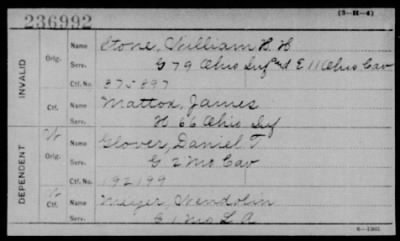 (3-H-4)
236992
INVALID
Orig.
Name Stone, William H. H
Serv. G 79 Ohio Inf and E 11 Ohio Cav
Ctf. No. 375897
Ctf.
Name Mattox, James
Serv. H 66 Ohio Inf
DEPENDENT
W
Orig.
Name Glover, Daniel T.
Serv. G 2 Mo Cav
Ctf. No. 92199
W
Ctf.
Name Meyer, Wendolin
Serv. 1 Mo L. A